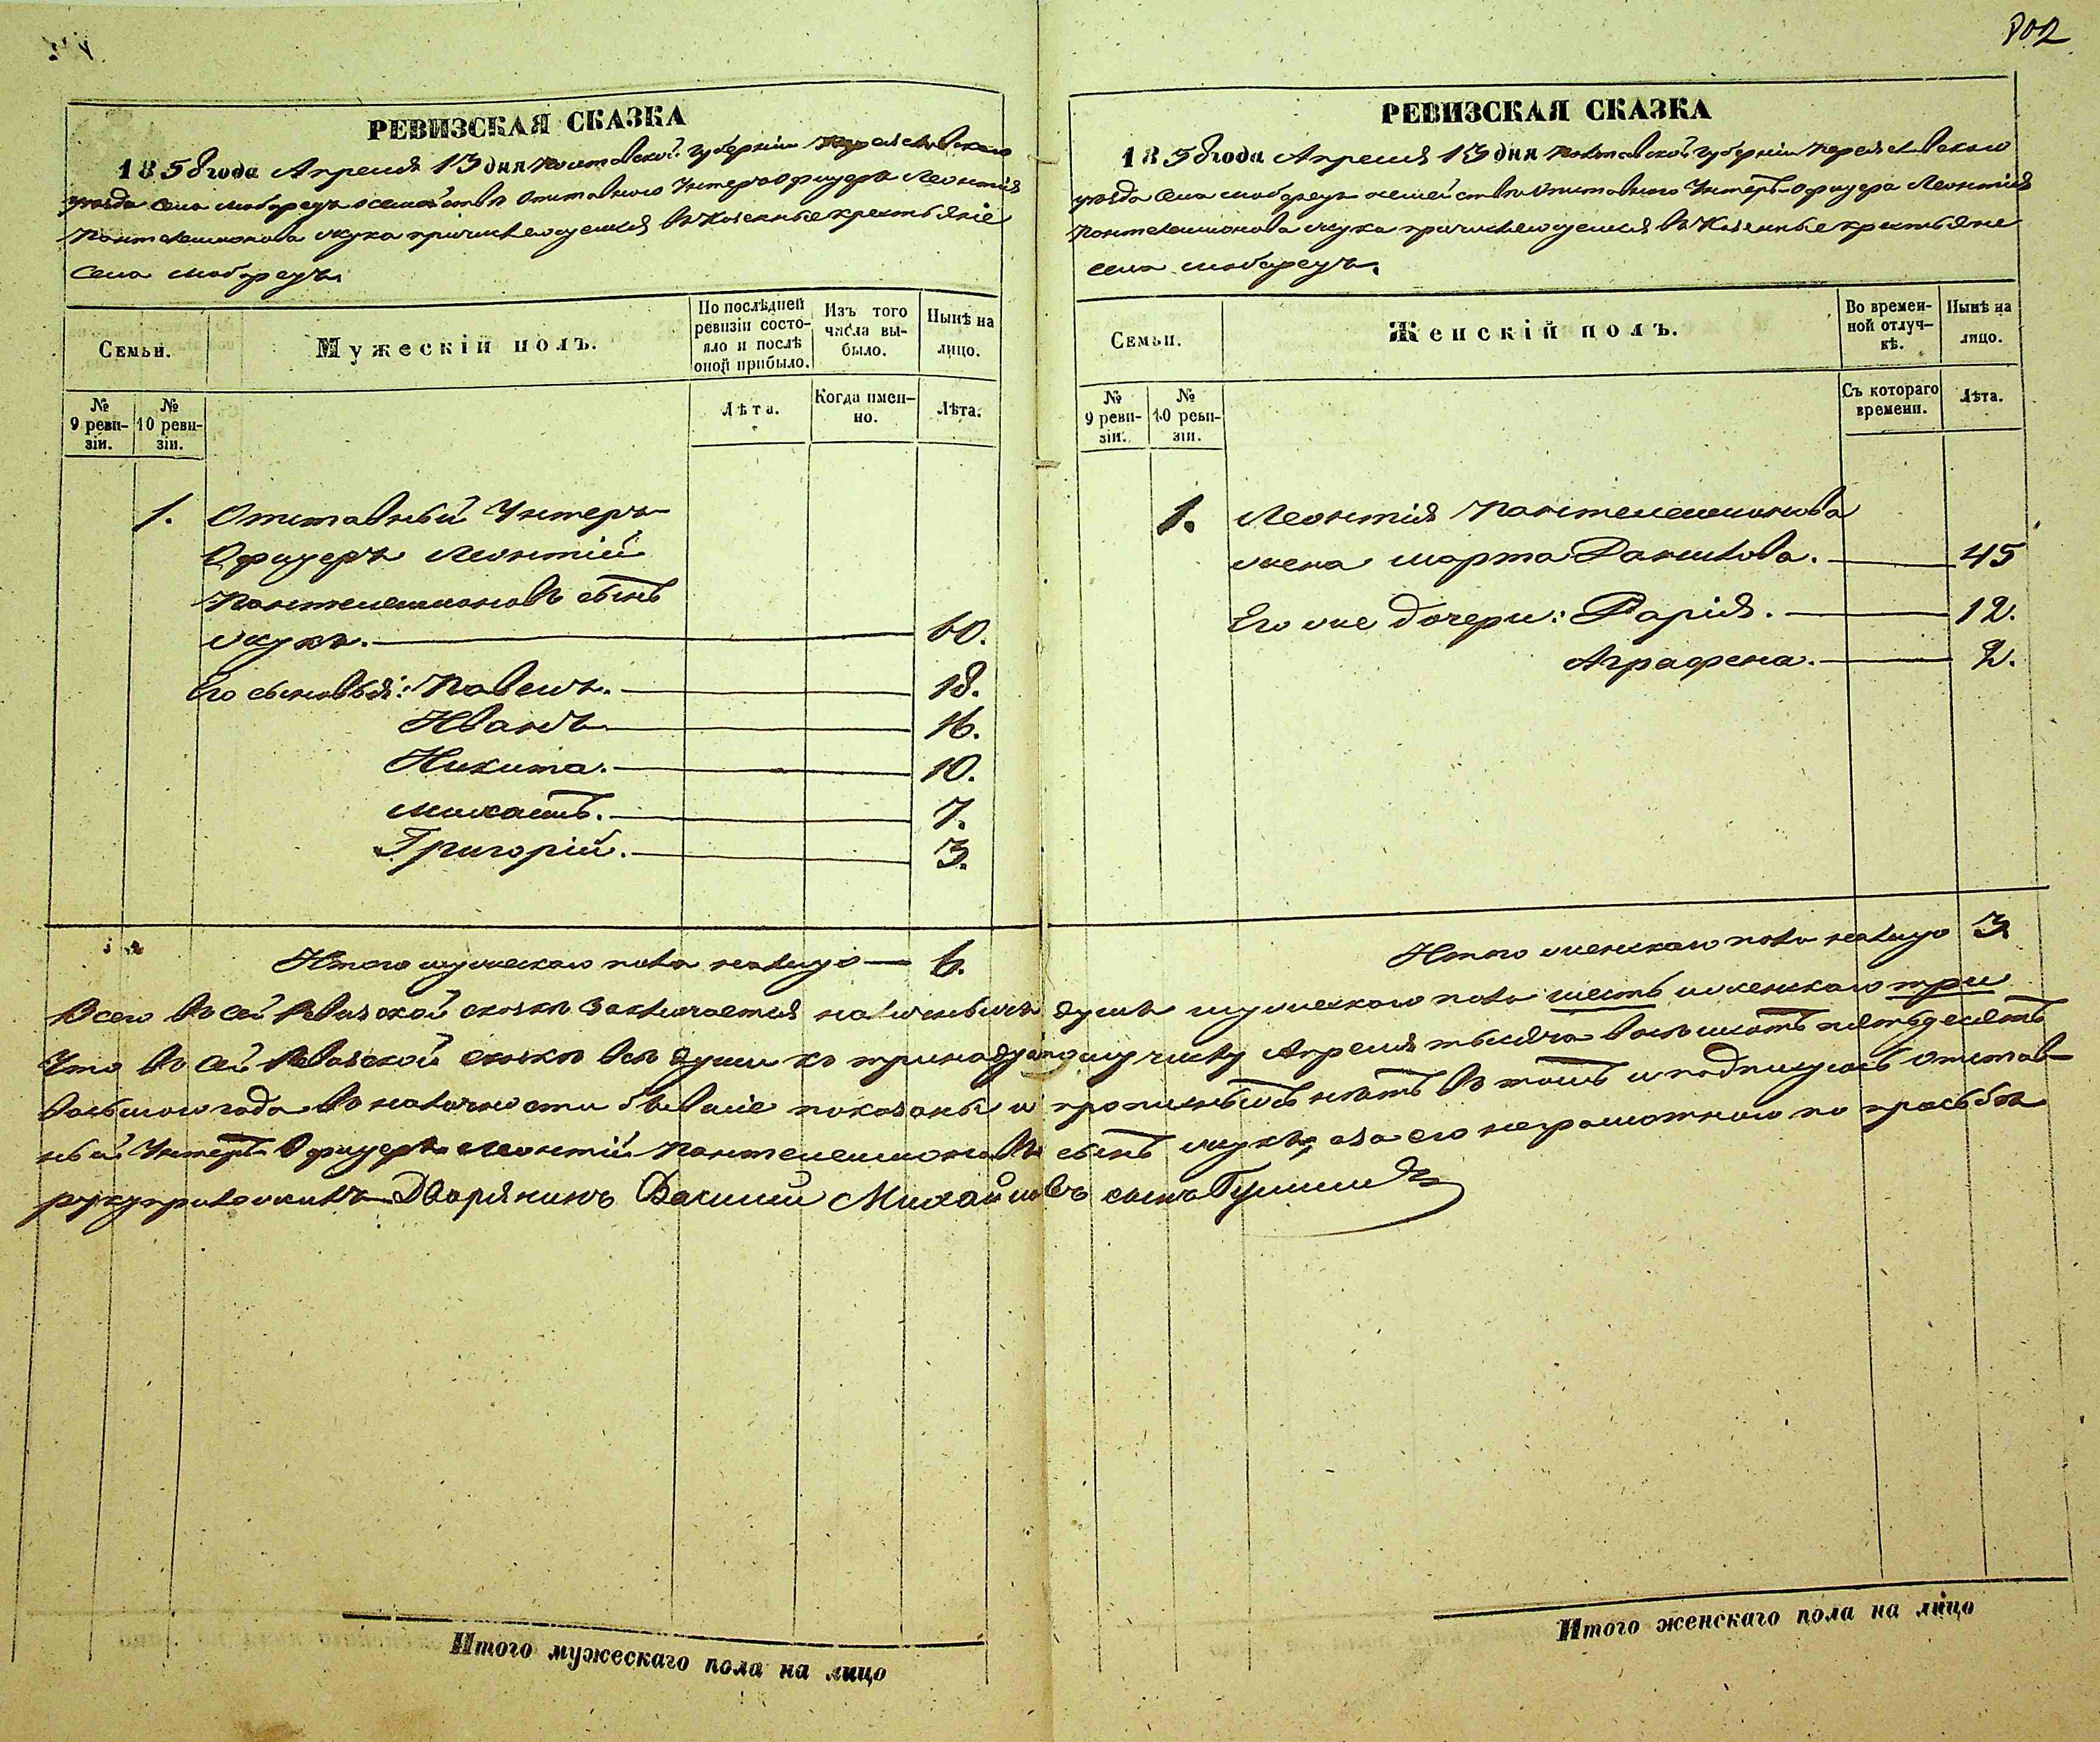 802
РЕВИЗСКАЯ СКАЗКА
1858 года Апреля 13 дня Полтавской Губерніи Переяславскаго
уезда села Мабореуъ о семействѣ Отставного Унтеръ Офицера Леонтія
Пантелеимонова Жука причисляющемся въ Казенные крестьяніе
Села
Семьи.
Мужескій полъ.
По послѣдней ревизіи состояло и послѣ оной прибыло.
Изъ того числа выбыло.
Нынѣ на лицо.
№ 9 ревизіи.
№ 10 ревизіи.
Лѣта.
Когда именно.
Лѣта.
1. Отставный Унтеръ
Офицеръ Леонтій
Пантелеимоновъ сынъ
Жукъ. 60.
Его сыновья: Павелъ. 18.
Иванъ 16.
Никита. 10.
Михаилъ. 7.
Григорій. 3.
Итого мужескаго пола налицо 6.
РЕВИЗСКАЯ СКАЗКА
1858 года Апреля 13 дня Полтавской Губерніи Переяславского
уезда Села о семействѣ Отставного Унтеръ-Офицера Леонтія
Пантелеимонова Жука причисляющемся въ Казенные крестьяне
села
Семьи.
Женскій полъ.
Во временной отлучкѣ.
Нынѣ на лицо.
№ 9 ревизіи.
№ 10 ревизіи.
Съ котораго времени.
Лѣта.
1. Леонтія Пантелеимонова
жена Марта Данилова. 45
Его же дочери: Дарія. 12.
Аграфена. 2.
Итого женскаго пола налицо 3
Всего въ сей Ревизской сказкѣ заключается наличныхъ душъ мужескаго пола шесть и женскаго три
Что въ сей Ревизской сказкѣ всѣ души къ тринадцатому числу Апреля тысяча восемьсотъ пятьдесятъ
восьмого года въ наличности бывшіе показаны и прописныхъ нѣтъ въ томъ и подпишусь Отстав-
ный Унтеръ Офицеръ Леонтій Пантелеимоновъ сынъ Жукъ, а за его неграмотного по прозьбѣ
руку приложилъ Дворянинъ Василий Михайловъ сынъ
Итого мужескаго пола на лицо
Итого женскаго пола на лицо